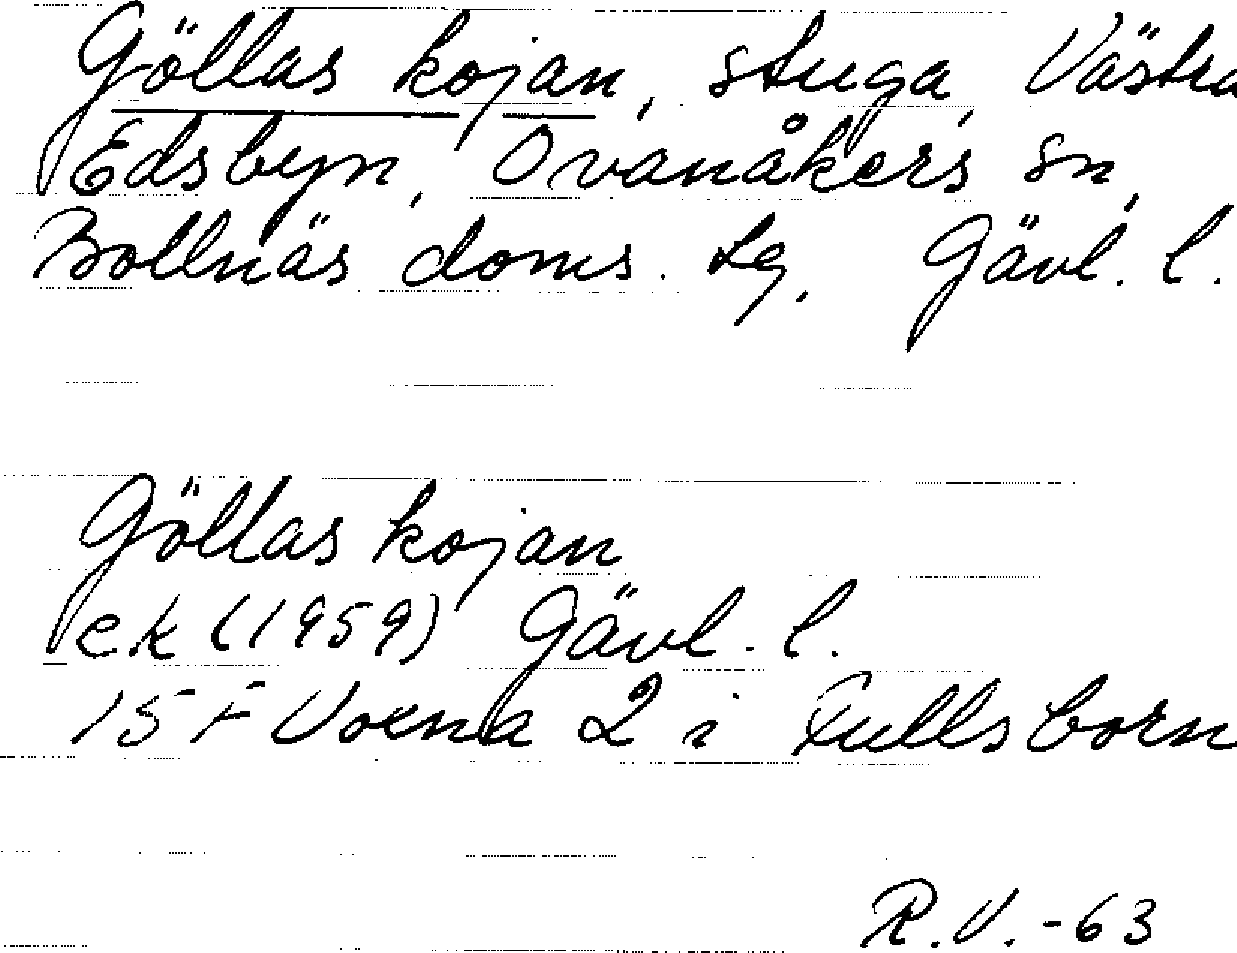 Göllas kojan, stuga, Västra
Edsbyn, Ovanåkers sn,
Bollnäs doms. tg, Gävl. l.
Göllas kojan
ek (1959) Gävl. l.
15 F Voxna 2 i Fullsborn
R.V. -63